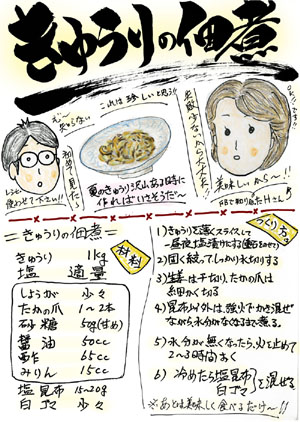 きゅうりの佃煮
これは珍しいと思う!!
初めて見た!
レシピ
使わせて下さい!!
夏のきゅうり沢山ある時に
作ればいきそうだ〜
美味しいから〜!!
＝きゅうりの佃煮＝
材料
きゅうり 1kg
塩 適量
しょうが 少々
たかの爪 1〜2本
砂糖 50g(甘め)
醤油 50cc
酢 65cc
みりん 15cc
塩昆布 15〜20g
白ゴマ 少々
つくり方
1)きゅうりを薄くスライスして
一昼夜塩漬けにする(重石をのせて)
2)固く絞ってしっかり水切りする
3)生姜は千切り、たかの爪は
細かく切る
4)昆布以外は、強火でかき混ぜ
ながら、水分がなくなるまで煮る。
5)水分が無くなったら、火を止めて
2〜3時間おく
6)冷めたら塩昆布
白ゴマ
を混ぜる
※あとは美味しく食べるだけ〜!!